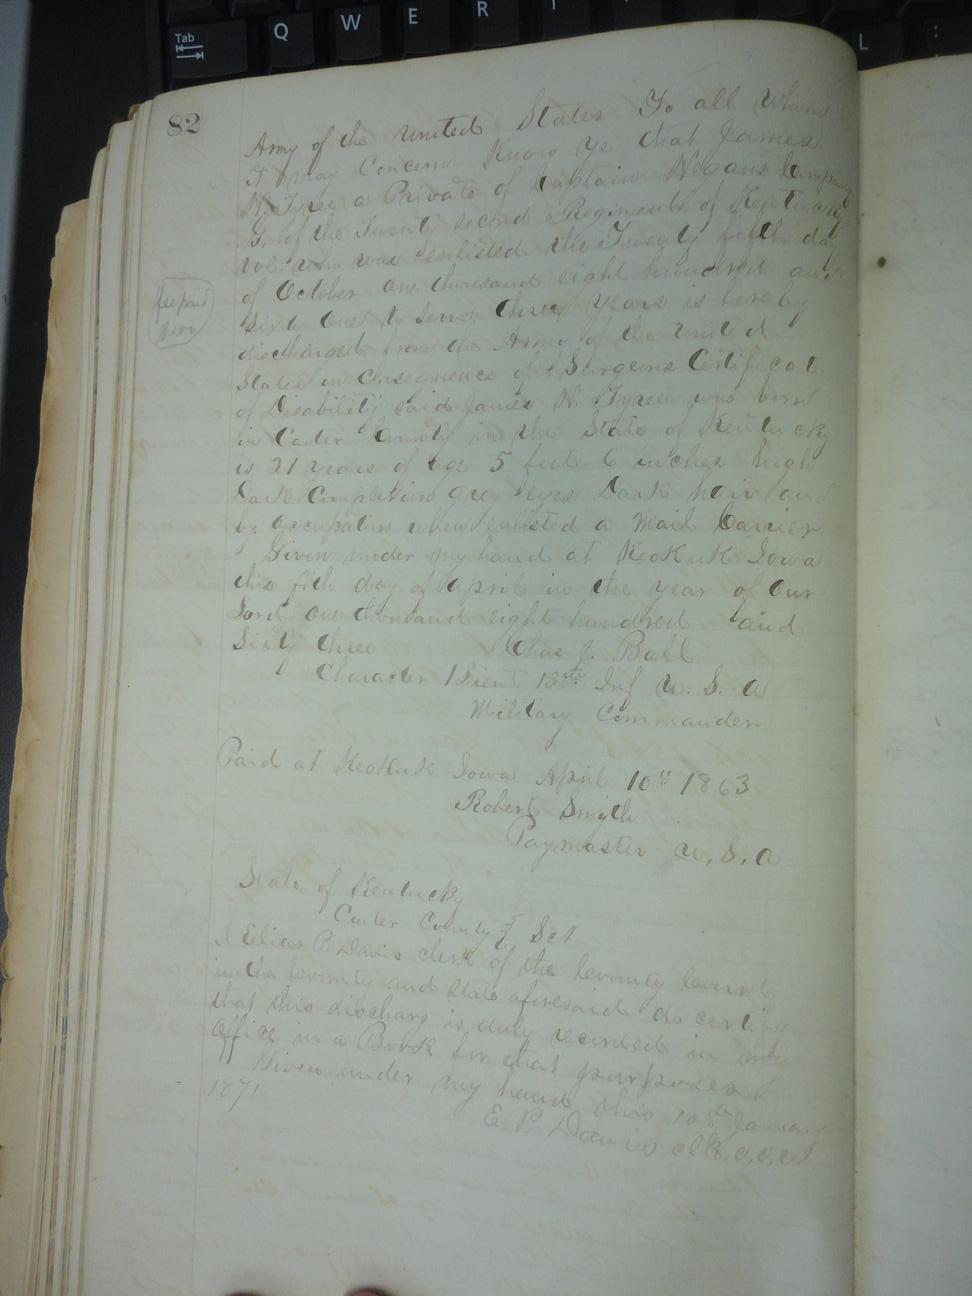 Tab
Q W E R T L :
82
Army of the United States To all Whom
it may Concern Know Ye that James
W. Tyree a Private of Captain Hogans Company
G, of the Twenty second Regiment of Kentucky
vol who was enlisted the Twenty fifth day
of October one thousand eight hundred and
Sixty One to Serve three years is hereby
discharged from the Army of the United
States in Consequence of Surgeons Certificate
of Disability said James W. Tyree was born
in Carter County in the State of Kentucky
is 21 years of age 5 feet 6 inches high
Dark Complexion grey eyes Dark hair and
by occupation when enlisted a Mail Carrier
Given under my hand at Keokuk Iowa
this fith day of April in the year of Our
Lord one thousand eight hundred and
Sixty three Chas J. Ball
Character 1 Lieut 13th Inf U. S. A
Military Commander
fee paid
Paid at Keokuk Iowa April 10th 1863
Robert Smith
Paymaster U, S, A
State of Kentucky
Carter County Sct
I Elias P. Davis clerk of the County Court
in the County and State aforesaid do certify
that this discharg is duly recorded in my
office in a Book for that purposes
Given under my hand this 10th January
1871
E. P. Davis clk, c, c, c,